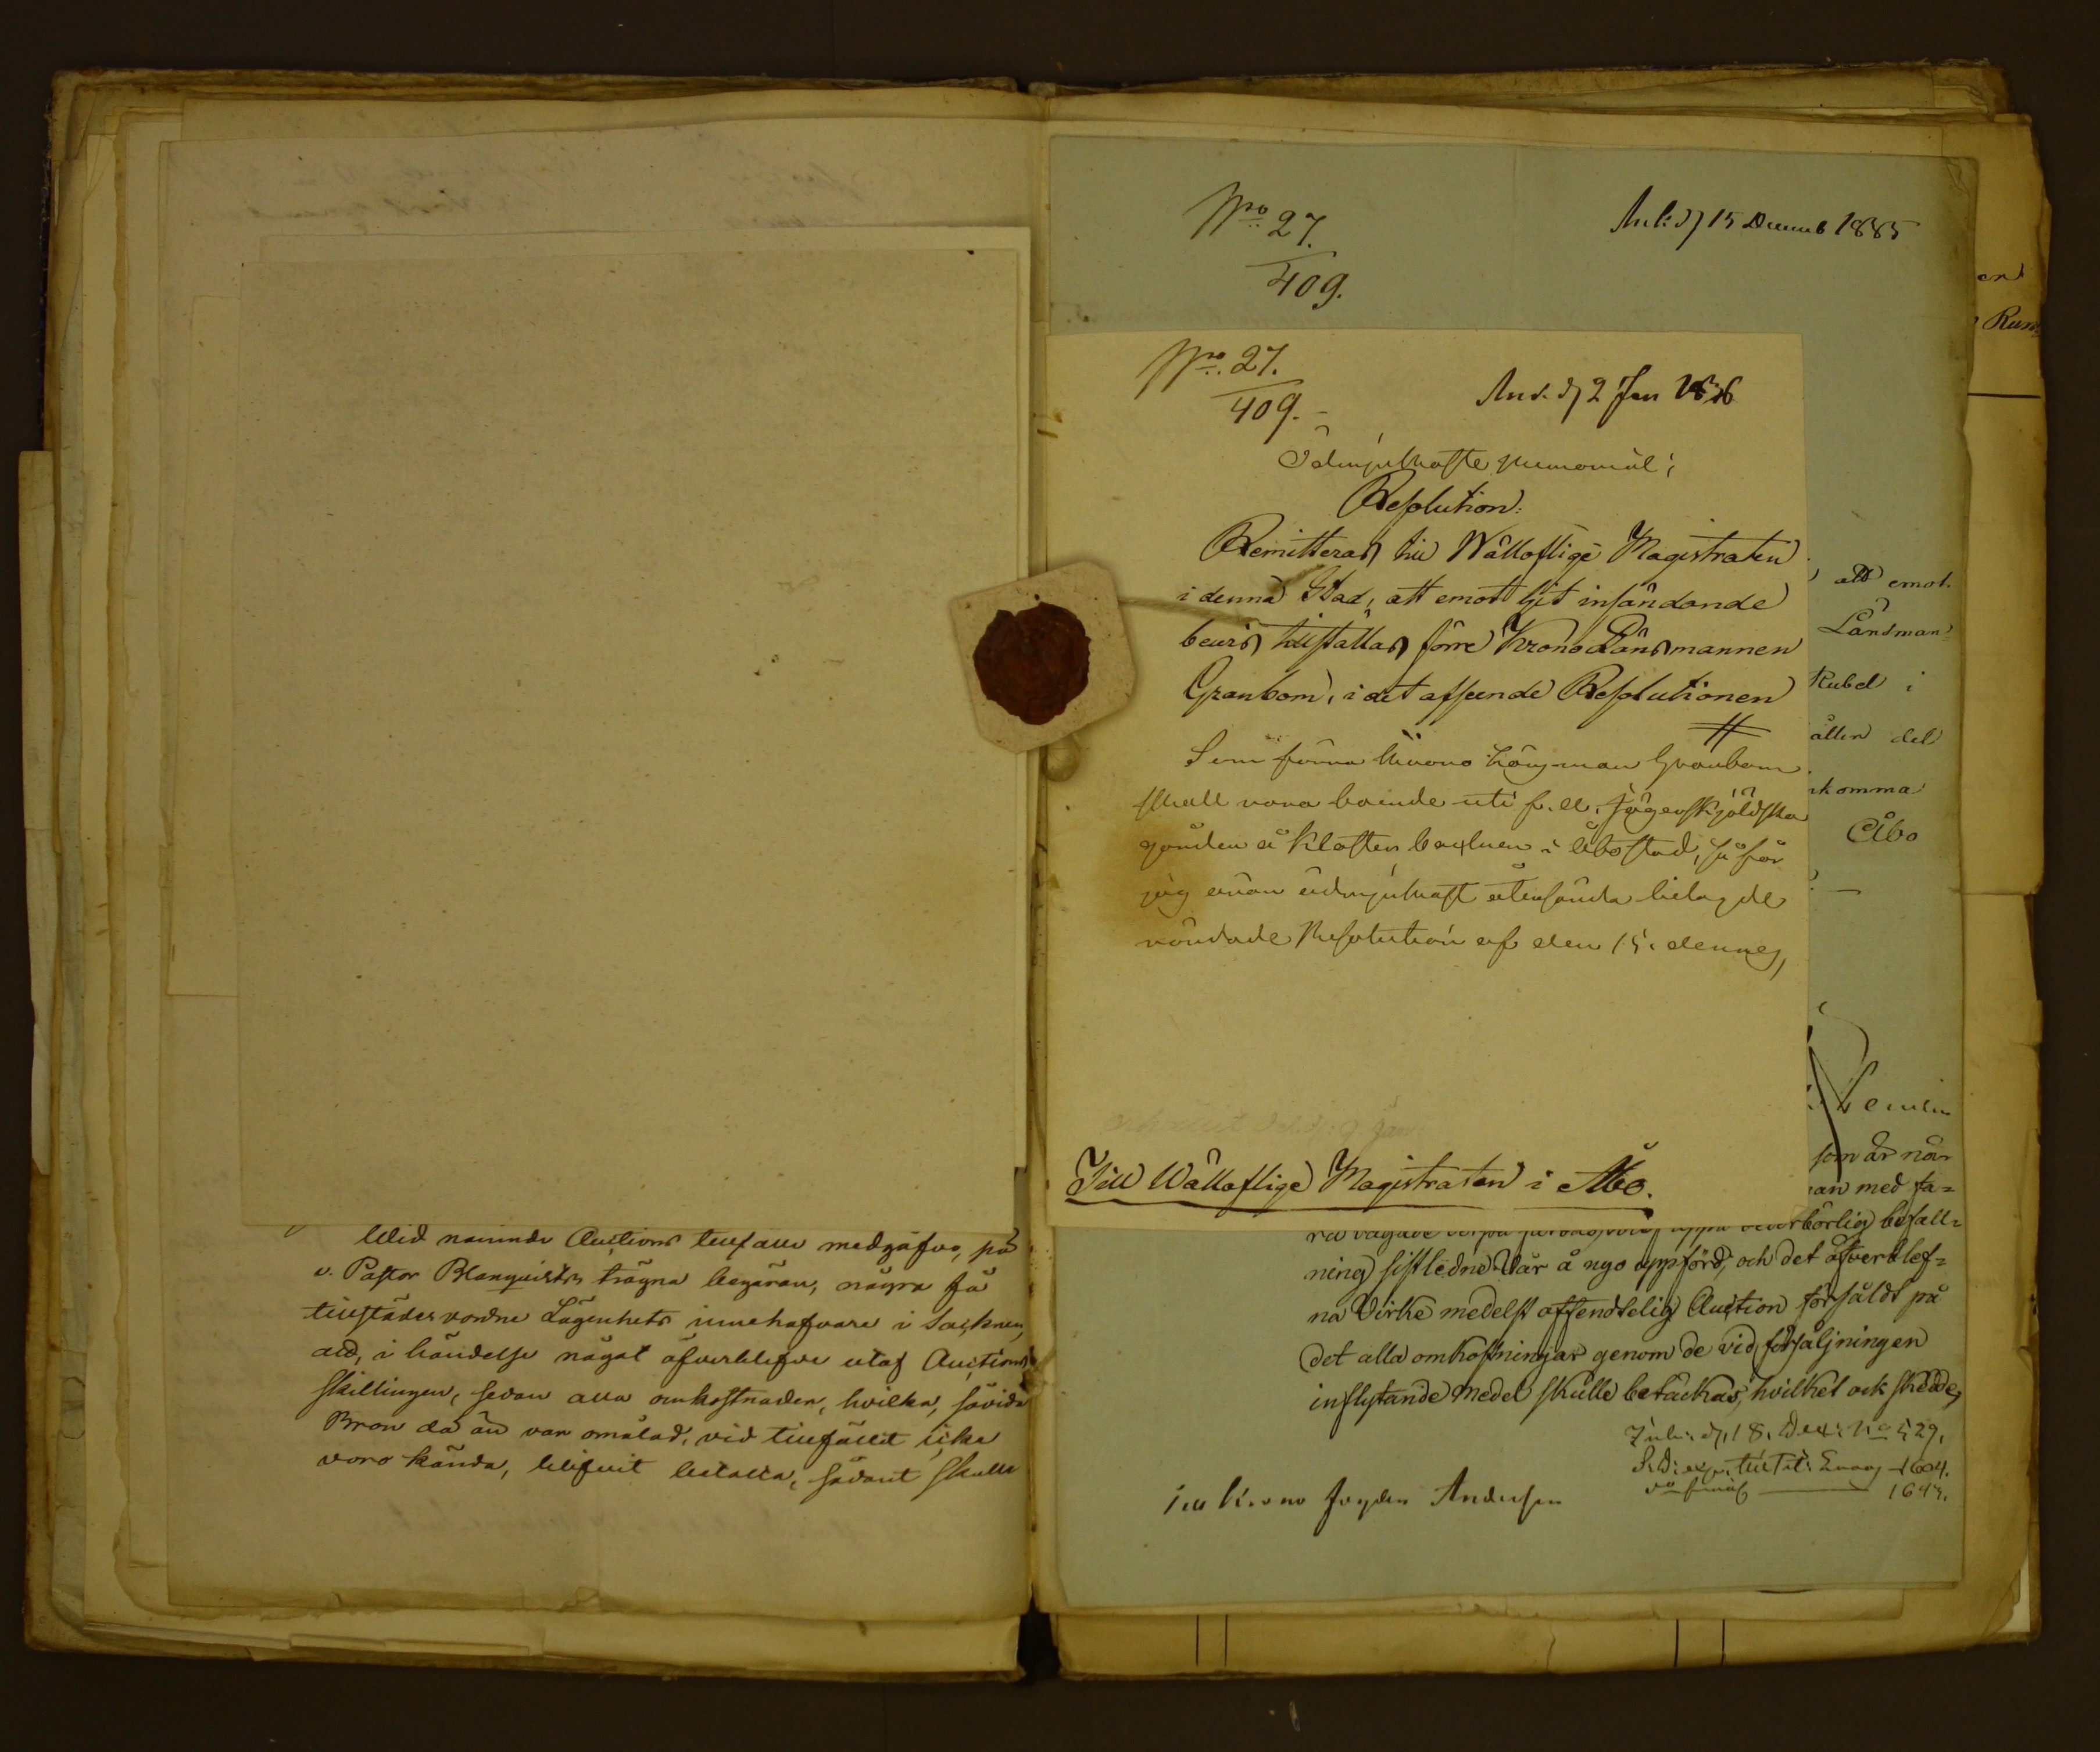 Wid namnde Auctions tillfälle medgåfvo, på
v. Pastor Blanquists trägna begäran, några få
tillstädes vordne Lägenhets innehafvare i Socknen,
att, i händelse något öfverblefve utaf Auctions
skillingen, sedan alla omkostnader, hvilka, såvida
Bron då än var omålad, vid tillfället icke
voro kända, blifvit betalta, sådant skulle
No 27.
409.
Ank: d 15 Decemb 1835
No. 27.
409.
Ank. d 2 Jan 1836
Ödmjukaste Memorial;
Resolution:
Remitteras till Wälloflige Magistraten
i denna Stad, att emot hit insändande
bevis tillställas förre Krono Länsmannen
Granbom, i det afseende Resolutionen
Som förra Krono Länsman Granbom
skall vara boende uti f. d. Jägerskjöldska
gården å Kloster backen i Åbo stad, så får
jag ödmjukast återsända bilagde
vördade Resolution af den 15. dennes,
Till Wälloflige Magistraten i Åbo.
en
Run
att emot
Länsman
Kubel i
åller det
komma
Åbo
som är när
an med fa=
börlig befall=
ning sistledne Vår å nyo uppförd, och det öfverblef=
na Virke medelst offendtelig Auction försåldt på
det alla omkostningar genom de vid försäljningen
inflytande medel skulle betäckas, hvilket ock skedde,
d. 18. Dec: No 529.
1604.
1643.
Till Krono Fogden Andersen